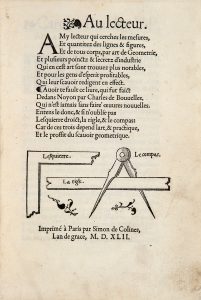 Au lecteur.
AMy lecteur qui cerches les mesures,
Et quantitez des lignes & figures,
Et de tous corps, par art de Geometrie,
Et plusieurs poincts & secretz d'industrie
Qui en cest art sont trouuez plus notables,
Et pour les gens d'esperit proffitables,
Qui leur scauoir redigent en effect.
Auoir te fault ce liure, qui fut faict
Dedans Noyon par Charles de Bouuelles,
Qui n'est iamais sans faire œuures nouuelles.
Entens le donc, & si n'oublie pas
Lesquierre droict, la rigle, & le compas:
Car de ces trois depend lart, & practique,
Et le proffit du scauoir geometrique.
Lesquierre.
Le compas.
La rigle.
Imprimé à Paris par Simon de Colines,
Lan de grace, M. D. XLII.